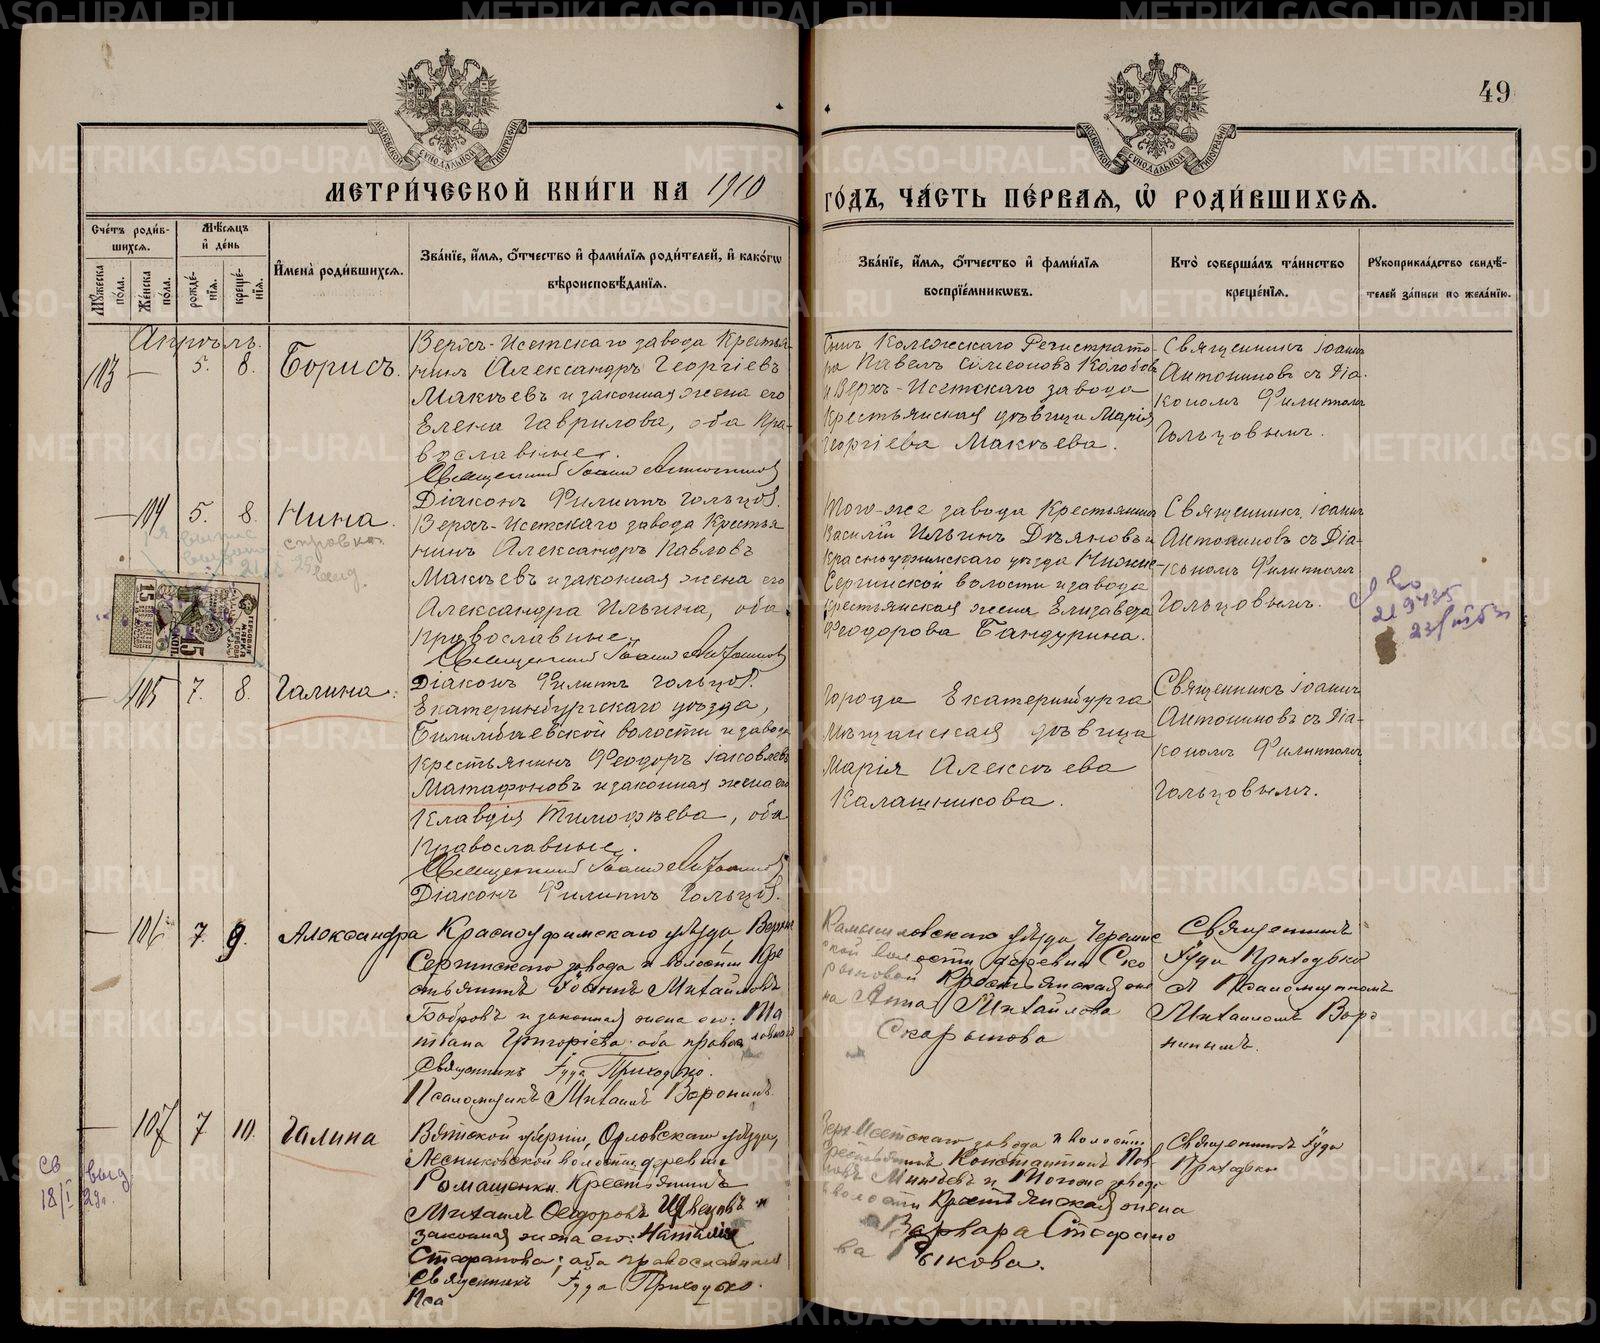 49
МЕТРИ́ЧЕСКОЙ КНИ́ГИ НА 1910
ГО́ДЪ, ЧА́СТЬ ПЕ́РВАЯ, Ѽ РОДИ́ВШИХСЯ.
Сче́тъ роди́в-
шихся.
Мѣ́сяцъ
и́ де́нь
Мꙋжеска по́ла.
Же́нска по́ла.
рожде́-
нїя.
креще́-
нїя.
И҆мена̀ роди́вшихся.
Зва́нїе, и҆́мя, ѻ҆́тчество и҆ фами́лїя роди́телей, и҆ како́гѡ
вѣроисповѣ́данїя.
Зва́нїе, и҆́мя, ѻ҆́тчество и҆ фами́лїя
воспрїе́мникѡвъ.
Кто̀ соверша́лъ та́инство
креще́нїя.
Рꙋкоприкла́дство свидѣ́-
телей за́писи по жела́нїю.
Апрѣль.
103 — 5. 8. Борисъ.
Верхъ-Исетскаго завода Крестья-
нинъ Александръ Георгіевъ
Макѣевъ и законная жена его
Елена Гаврилова, оба Пра-
вославные.
Священникъ Іоаннъ Антониновъ
Діаконъ Филиппъ Гольцовъ.
Сынъ Коллежскаго Регистрато-
ра Павелъ Симеоновъ Колобовъ
и Верхъ-Исетскаго завода
Крестьянская дѣвица Марія
Георгіева Макѣева.
Священникъ Іоаннъ
Антониновъ съ Діа-
кономъ Филиппомъ
Гольцовымъ.
— 104 5. 8. Нина.
справка
выд.
Верхъ-Исетскаго завода Крестья
нинъ Александръ Павловъ
Макѣевъ и законная жена его
Александра Ильина, оба
православные.
Священникъ Іоаннъ Антониновъ
Діаконъ Филиппъ Гольцовъ.
Того-же завода Крестьянинъ
Василій Ильинъ Деяновъ и
Красноуфимскаго уѣзда Нижне-
Сергинской волости и завода
крестьянская жена Елизавета
Феодорова Бандурина.
Священникъ Іоаннъ
Антониновъ съ Діа-
кономъ Филиппомъ
Гольцовымъ.
15
КОП.
— 105 7. 8. Галина.
Екатеринбургскаго уѣзда,
Билимбаевской волости и завода
крестьянинъ Феодоръ Іаковлевъ
Матафоновъ и законная жена его
Клавдія Тимофѣева, оба
православные.
Священникъ Іоаннъ Антониновъ
Діаконъ Филиппъ Гольцовъ.
Города Екатеринбурга
мѣщанская дѣвица
Марія Алексѣева
Калашникова.
Священникъ Іоаннъ
Антониновъ съ Діа-
кономъ Филиппомъ
Гольцовымъ.
— 106 7. 9. Александра
Красноуфимскаго уѣзда, Верхне
Сергинскаго завода и волости Кре
стьянинъ Іоаннъ Михайловъ
Бобровъ и законная жена его: Та
тіана Григоріева: оба православнаго
Священникъ Іуда Приходько.
Псаломщикъ Михаилъ Воронинъ.
Камышловскаго уѣзда Черемис
ской волости деревни Ско
рыновой Крестьянская же
на Анна Михайлова
Скарынова
Священникъ
Іуда Приходько
с Псаломщикомъ
Михаиломъ Воро
нинымъ.
— 107 7 10. Галина
Вятской губерніи, Орловскаго уѣзда,
Лесниковской волости, деревни
Ромашенки. Крестьянинъ
Михаилъ Феодоровъ Швецовъ и
законная жена его: Наталія
Стефанова; оба православныя
Священникъ Іуда Приходько.
Пса
Верх Исетскаго завода и волости
Крестьянинъ Константинъ Пав-
ловъ Минѣевъ и Тогоже завода
и волости Крестьянская жена
Варвара Стефано
ва Рыкова.
Священникъ Іуда
Приходько
выд.